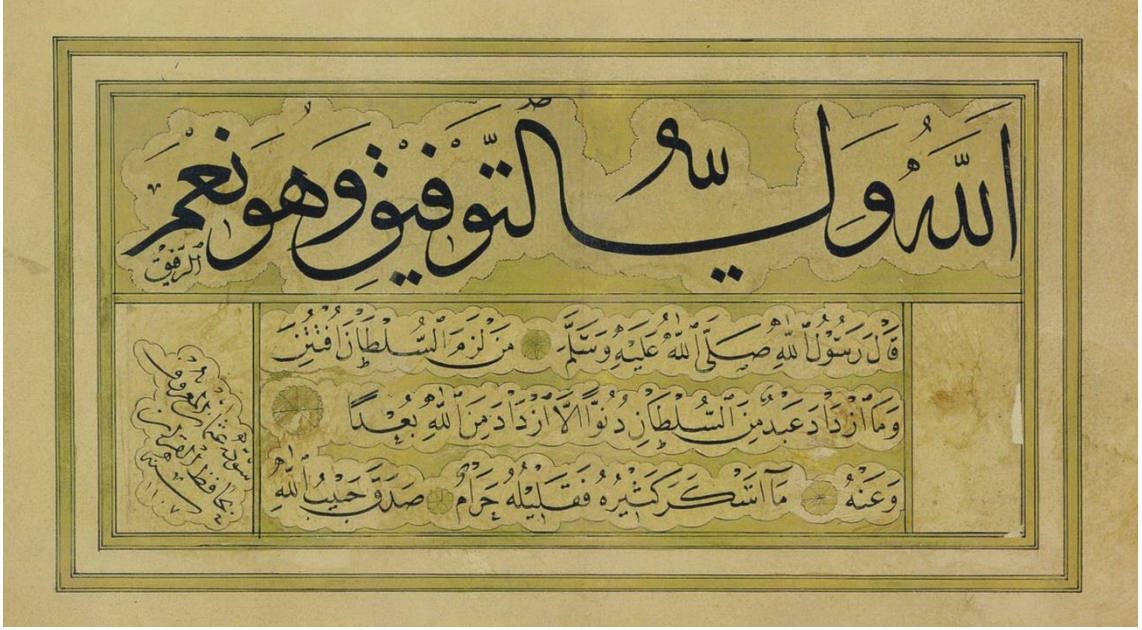 اَللّٰهُ وَلِيُّ التَّوْفِيقِ وَهُوَ نِعْمَ
الرَّفِيقُ
قَالَ رَسُولُ اللّٰهِ صَلَّى اللّٰهُ عَلَيْهِ وَسَلَّمَ مَنْ لَزِمَ السُّلْطَانَ افْتُتِنَ
وَمَا ازْدَادَ عَبْدٌ مِنَ السُّلْطَانِ دُنُوًّا اِلَّا ازْدَادَ مِنَ اللّٰهِ بُعْدًا
وَعَنْهُ مَا اَسْكَرَ كَثِيرُهُ فَقَلِيلُهُ حَرَامٌ صَدَقَ حَبِيبُ اللّٰهِ
سوده عثمان المعروف
بحافظ القرآن
سنة